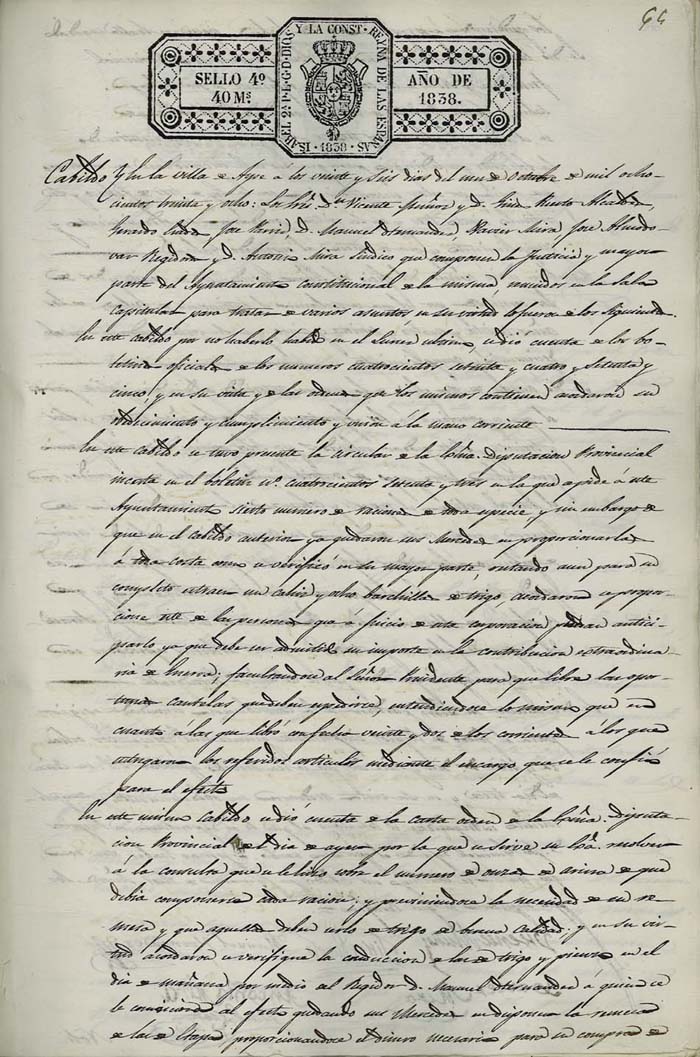 64
ISABEL 2ª P. L. G. D. DIOS Y LA CONST. REYNA DE LAS ESPAÑAS
SELLO 4º
40 Ms.
AÑO DE
1838.
1838
Cabildo En la villa de Aspe á los veinte y seis dias del mes de Octubre de mil ocho-
cientos treinta y ocho: Los Sres. Dn. Vicente y D. Ginés Alcaldes,
Gerardo José D. Manuel Hernandez, Xavier Mira José Almodo-
var Regidores y D. Antonio Mira Sindico que componen la Justicia y mayor
parte del Ayuntamiento Constitucional de la misma, reunidos en la Sala
capitular para tratar de varios asuntos, en su virtud lo fueron de los siguientes.
En este cabildo por no haberlo habido en el Lunes ultimo, se dió cuenta de los bo-
letines oficiales de los numeros cuatrocientos setenta y cuatro y setenta y
cinco, y en su vista y de las ordenes que los mismos contienen acordaron su
obedecimiento y cumplimiento y unirse á la mano corriente
En este cabildo se tuvo presente la circular de la Exma. Diputacion Provincial
inserta en el boletin nº. cuatrocientos setenta y tres en la que se pide á este
Ayuntamiento cierto numero de raciones de toda especie, y sin embargo de
que en el cabildo anterior ya quedaron sus Mercedes en proporcionarlas
á toda costa como se verificó en su mayor parte, restando aun para su
completo un cahiz y ocho barchillas de trigo, acordaron se propor-
cione este de las personas que á juicio de esta corporacion puedan antici-
parlo ya que debe ser admitido su importe en la contribucion extraordina-
ria de Guerra; facultandose al Señor Presidente para que libre las opor-
tunas cautelas que deben espedirse, entendiendose lo mismo que en
cuanto á las que libró con fecha veinte y dos de los corrientes á los que
entregaron los referidos articulos mediante el encargo que se le confió
para el efecto
En este mismo Cabildo se dió cuenta de la carta orden de la Exma. Diputa-
cion Provincial de el dia de ayer por la que se sirve su Exa. resolver
á la consulta que se le hizo sobre el numero de onzas de arina de que
debia componerse cada racion; y previniendose la necesidad de su re-
mesa y que aquellas deben serlo de trigo de buena calidad; y en su vir-
tud acordaron se verifique la conduccion de las de trigo y pienso en el
dia de mañana por medio del Regidor D. Manuel Hernandez á quien se
le comisiona al efecto quedando sus Mercedes en disponer la remesa
de las de Etapa proporcionandose el dinero necesario para su compra de